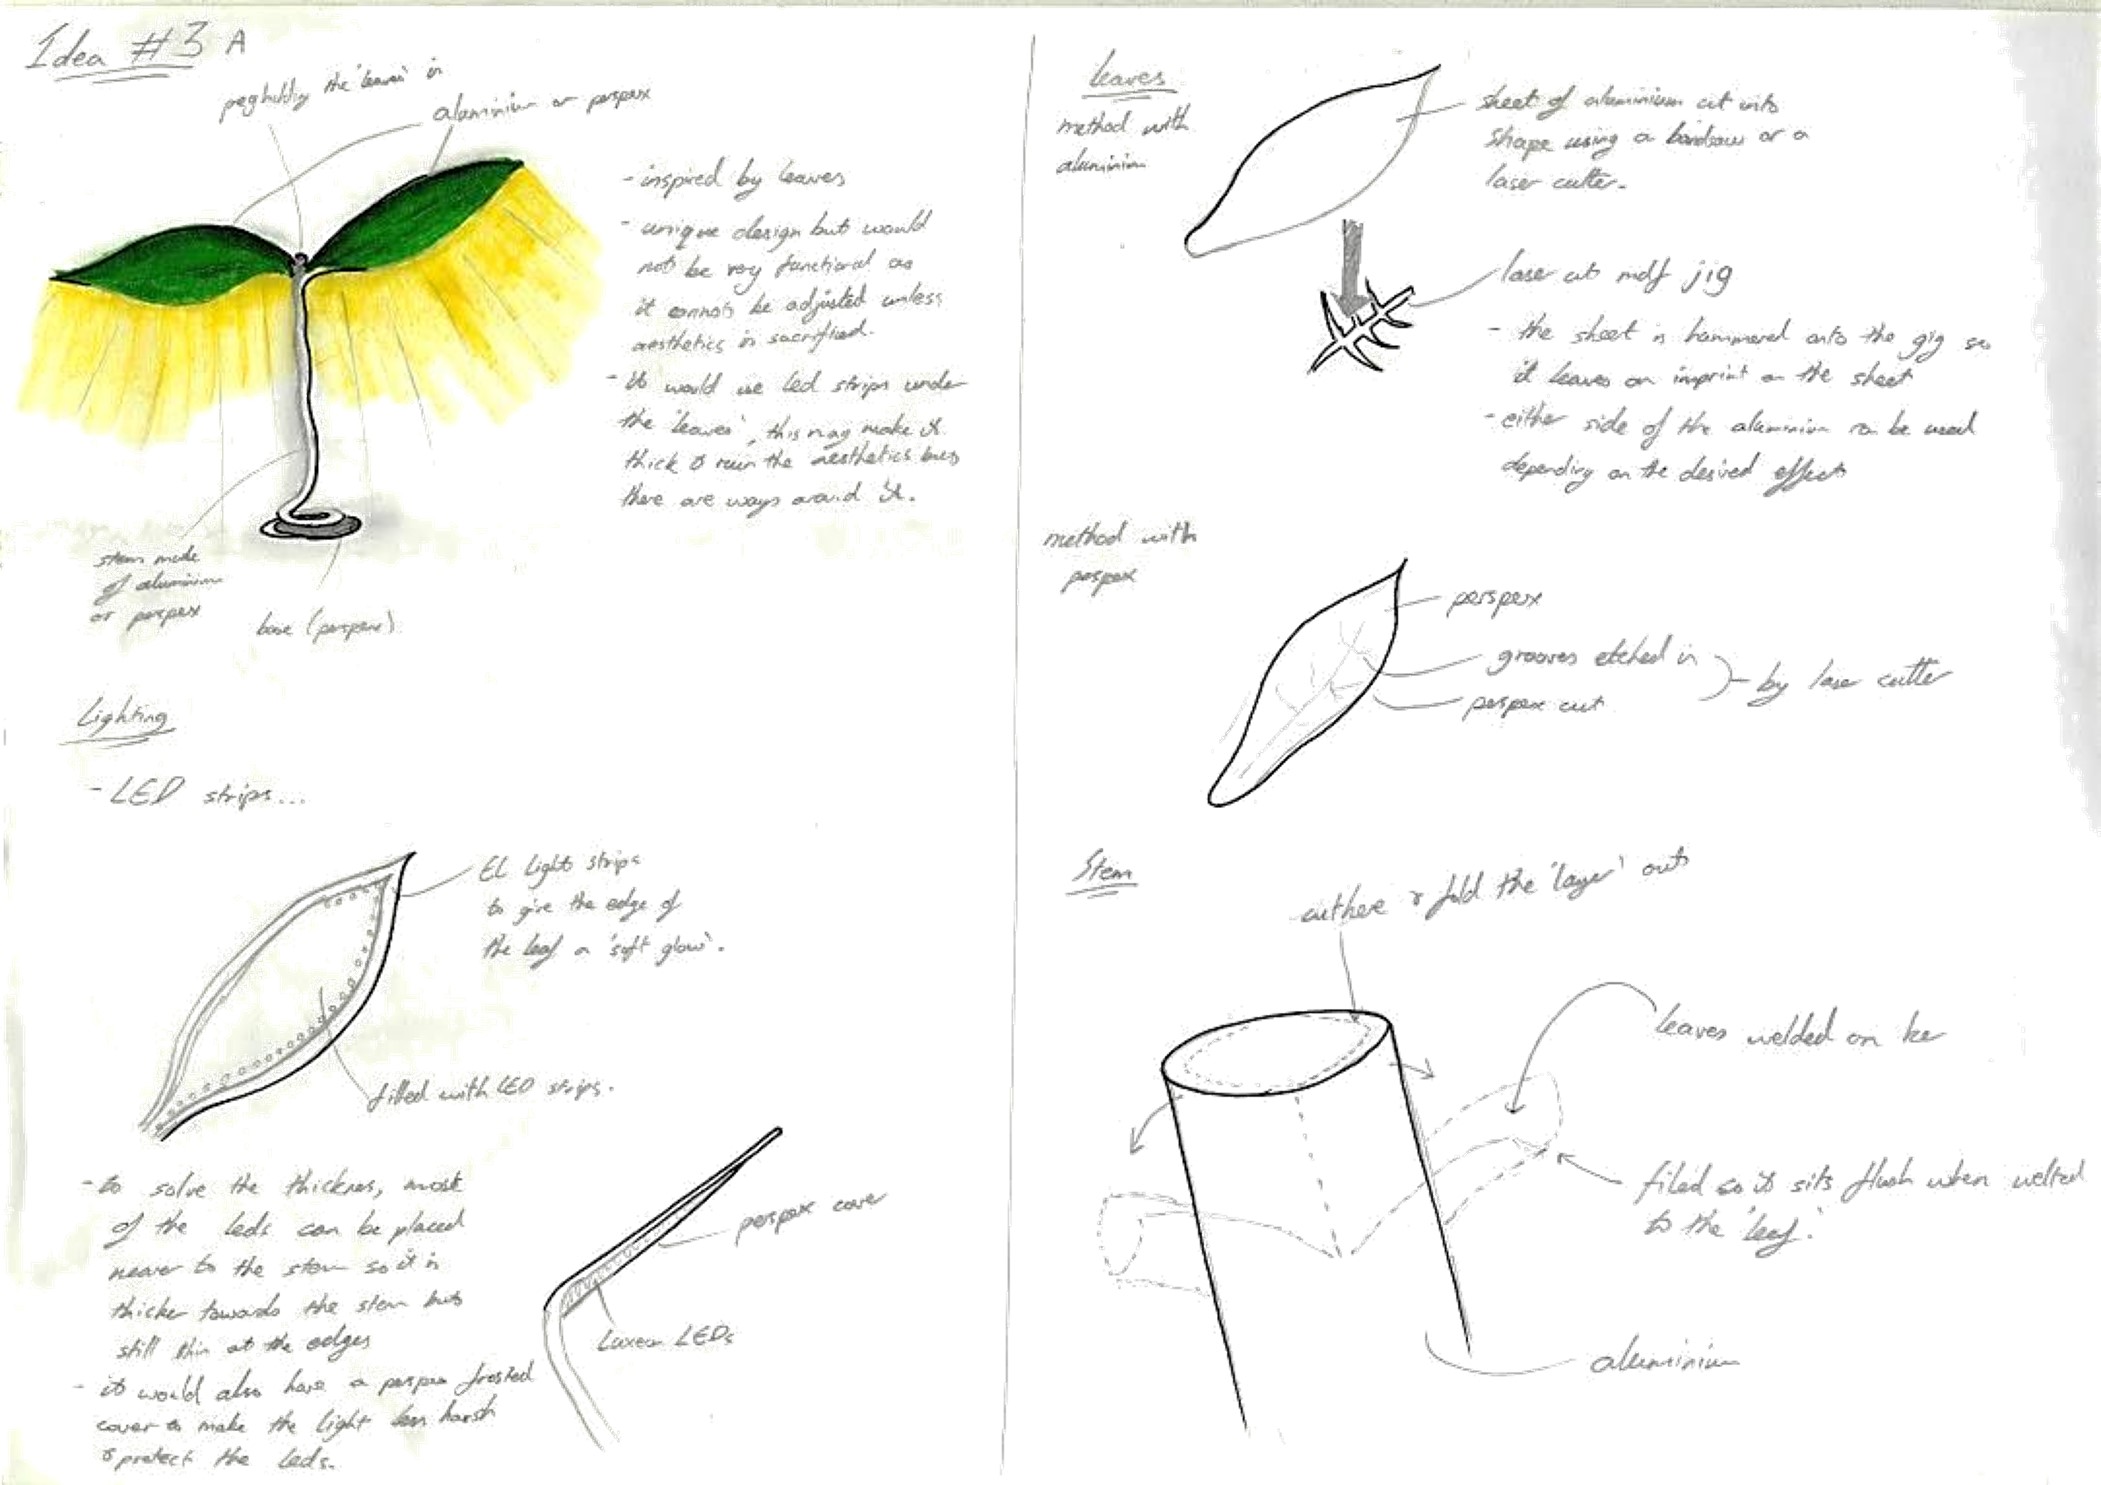 Idea #3 A
peg holding the 'leaves' in
aluminium or perspex
- inspired by leaves
- unique design but would
not be very functional as
it cannot be adjusted unless
aesthetics is sacrificed.
- it would use led strips under
the 'leaves', this may make it
thick & ruin the aesthetics but
there are ways around it.
stem made
of aluminium
or perspex
base (perspex)
Lighting
- LED strips...
EL light strips
to give the edge of
the leaf a 'soft glow'.
filled with LED strips.
- to solve the thickness, most
of the leds can be placed
nearer to the stem so it is
thicker towards the stem but
still thin at the edges
- it would also have a perspex frosted
cover to make the light less harsh
& protect the leds.
perspex cover
Luxeon LEDs
Leaves
method with
aluminium
sheet of aluminium cut into
shape using a bandsaw or a
laser cutter.
laser cut mdf jig
- the sheet is hammered onto the gig so
it leaves an imprint on the sheet
- either side of the aluminium can be used
depending on the desired effect
method with
perspex
perspex
grooves etched in
perspex cut
by laser cutter
Stem
cut here & fold the 'layer' out
leaves welded on here
filed so it sits flush when welted
to the 'leaf'.
aluminium